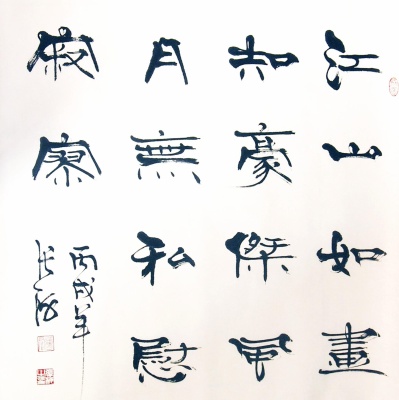 江山如畫
知豪傑風
月無私慰
寂寥
丙戌年